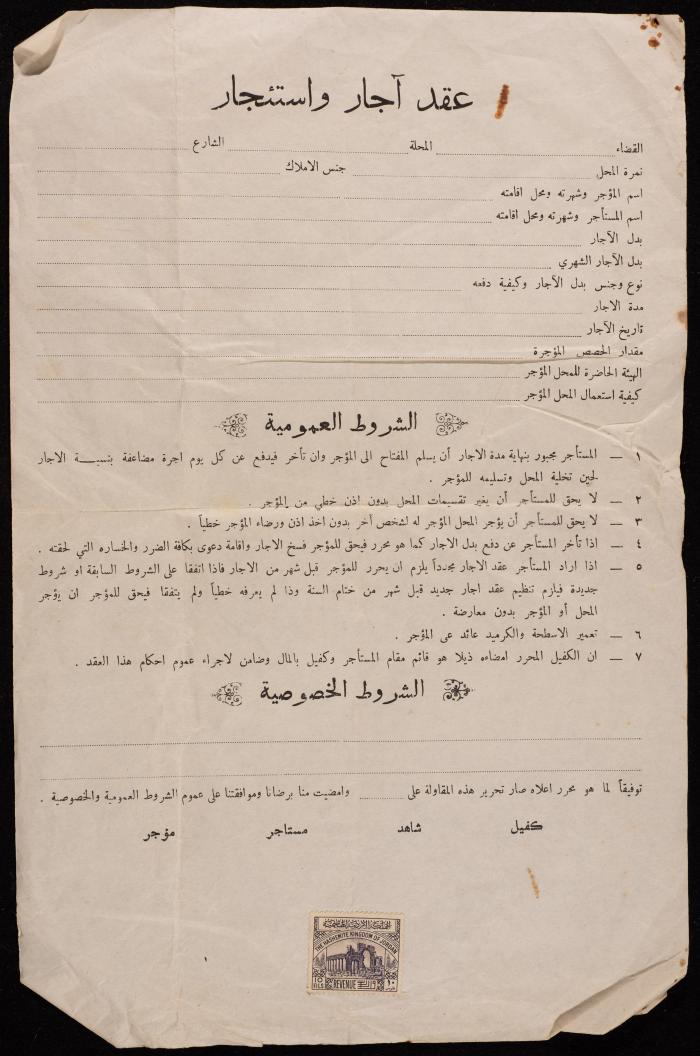 عقد آجار واستئجار
القضاء المحلة الشارع
نمرة المحل جنس الاملاك
اسم المؤجر وشهرته ومحل اقامته
اسم المستأجر وشهرته ومحل اقامته
بدل الآجار
بدل الآجار الشهري
نوع وجنس بدل الآجار وكيفية دفعه
مدة الاجار
تاريخ الآجار
مقدار الحصص المؤجرة
الهيئة الحاضرة للمحل المؤجر
كيفية استعمال المحل المؤجر
الشروط العمومية
١ — المستأجر مجبور بنهاية مدة الاجار أن يسلم المفتاح الى المؤجر وان تأخر فيدفع عن كل يوم اجرة مضاعفة بنسبة الاجار
لحين تخلية المحل وتسليمه للمؤجر .
٢ — لا يحق للمستأجر أن يغير تقسيمات المحل بدون اذن خطي من المؤجر .
٣ — لا يحق للمستأجر أن يؤجر المحل المؤجر له لشخص آخر بدون اخذ اذن ورضاء المؤجر خطياً .
٤ — اذا تأخر المستأجر عن دفع بدل الاجار كما هو محرر فيحق للمؤجر فسخ الاجار واقامة دعوى بكافة الضرر والخساره التي لحقته .
٥ — اذا اراد المستأجر عقد الاجار مجدداً يلزم ان يحرر للمؤجر قبل شهر من الاجار فاذا اتفقا على الشروط السابقة او شروط
جديدة فيلزم تنظيم عقد اجار جديد قبل شهر من ختام السنة وذا لم يعرفه خطياً ولم يتفقا فيحق للمؤجر ان يؤجر
المحل أو المؤجر بدون معارضة .
٦ — تعمير الاسطحة والكرميد عائد عى المؤجر .
٧ — ان الكفيل المحرر امضاءه ذيلا هو قائم مقام المستأجر وكفيل بالمال وضامن لاجراء عموم احكام هذا العقد .
الشروط الخصوصية
توفيقاً لما هو محرر اعلاه صار تحرير هذه المقاولة على وامضيت منا برضانا وموافقتنا على عموم الشروط العمومية والخصوصية .
كفيل شاهد مستاجر مؤجر
المملكة الاردنية الهاشمية
THE HASHEMITE KINGDOM OF JORDAN
10 FILS REVENUE ١٠